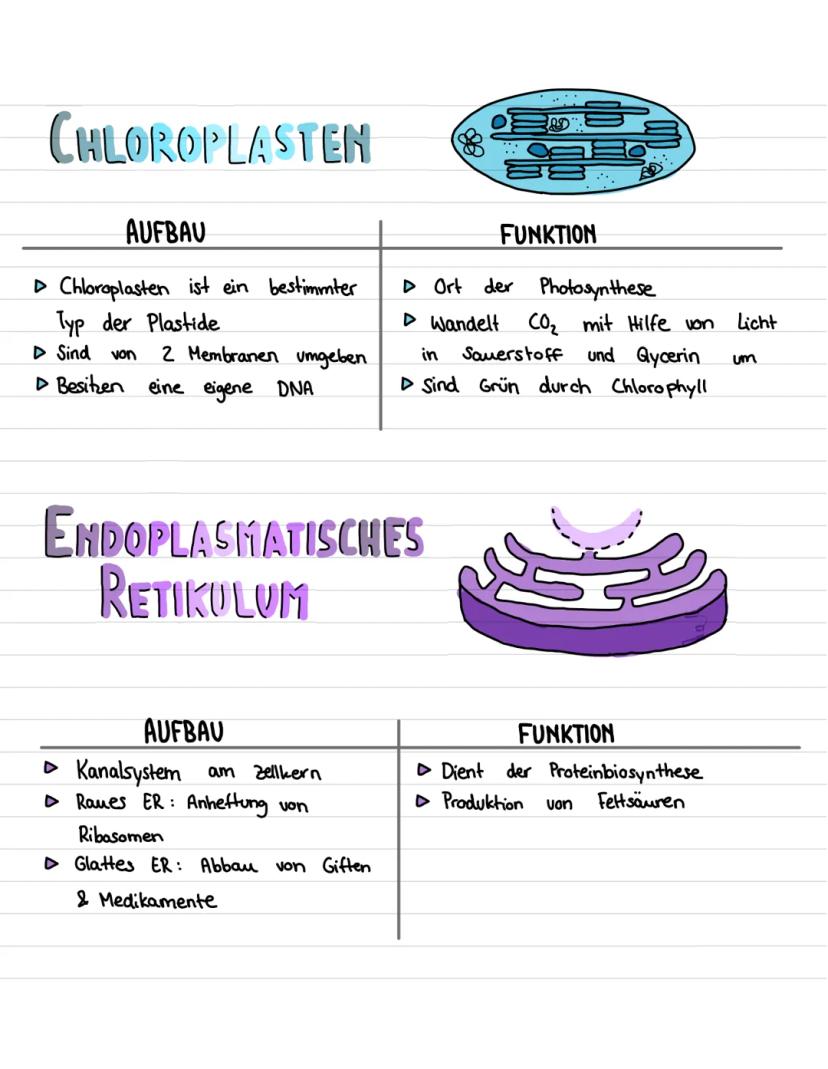 CHLOROPLASTEN
AUFBAU
FUNKTION
▷ Chloroplasten ist ein bestimmter
Typ der Plastide
▷ Sind von 2 Membranen umgeben
▷ Besitzen eine eigene DNA
▷ Ort der Photosynthese
▷ Wandelt CO₂ mit Hilfe von Licht
in Sauerstoff und Qycerin um
▷ Sind Grün durch Chlorophyll
ENDOPLASMATISCHES
RETIKULUM
AUFBAU
FUNKTION
▷ Kanalsystem am Zellkern
▷ Raues ER: Anheftung von
Ribosomen
▷ Glattes ER: Abbau von Giften
& Medikamente
▷ Dient der Proteinbiosynthese
▷ Produktion von Fettsäuren